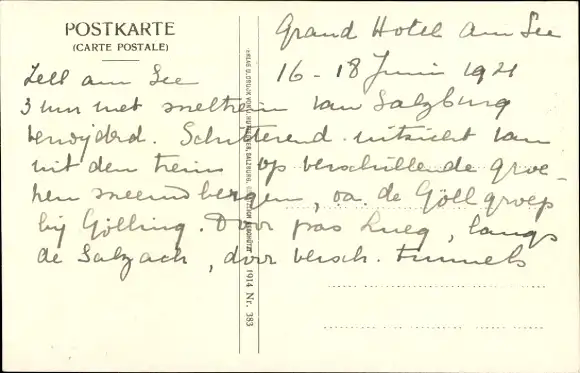 POSTKARTE
(CARTE POSTALE)
Grand Hotel am See
Zell am See 16 - 18 Juni 1921
3 uur met sneltrein van Salzburg
verwijderd. Schitterend uitzicht van
uit den trein op verschillende groe-
pen sneeuwbergen, oa. de Göll groep
bij Gölling. Door pas Lueg, langs
de Salzach, door versch. tunnels
1914 Nr. 383